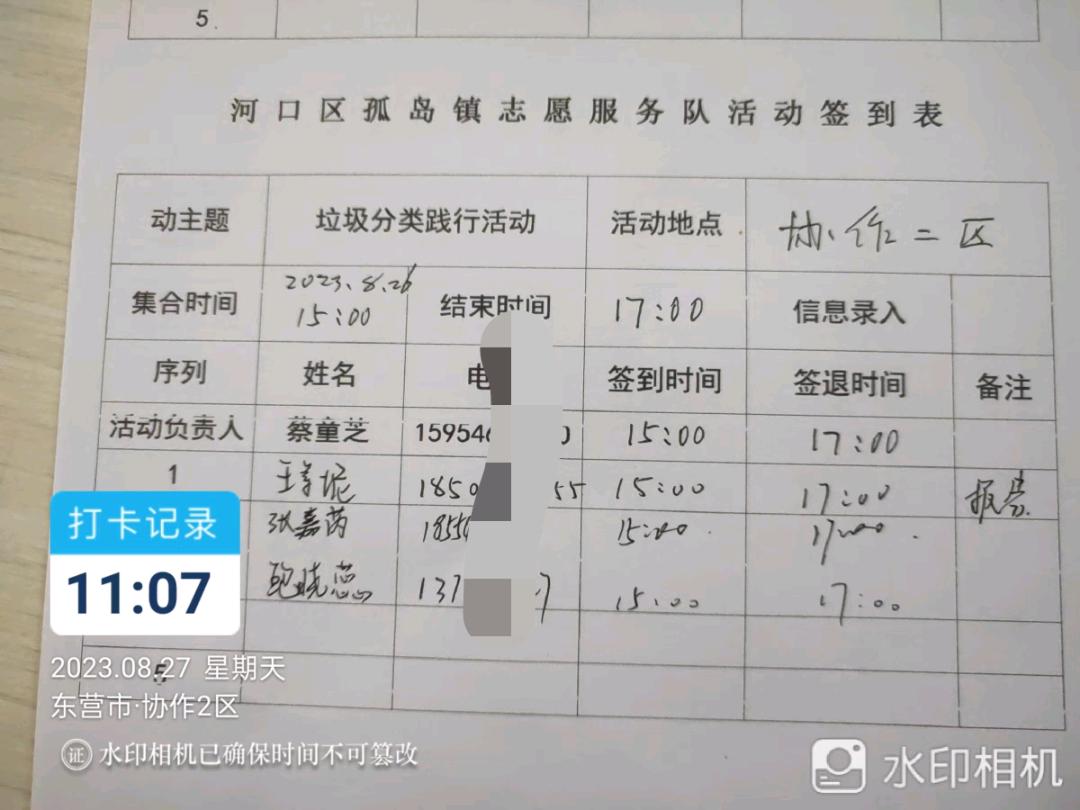 5.
河口区孤岛镇志愿服务队活动签到表
动主题 垃圾分类践行活动 活动地点 协作二区
集合时间 2023.8.26 15:00 结束时间 17:00 信息录入
序列 姓名 电 签到时间 签退时间 备注
活动负责人 蔡童芝 15954 0 15:00 17:00
1 王 妮 1850 55 15:00 17:00
张嘉芮 1855 15:00 17:00
鲍晓蕊 137 7 15:00 17:00
5
打卡记录
11:07
2023.08.27 星期天
东营市·协作2区
证 水印相机已确保时间不可篡改
水印相机